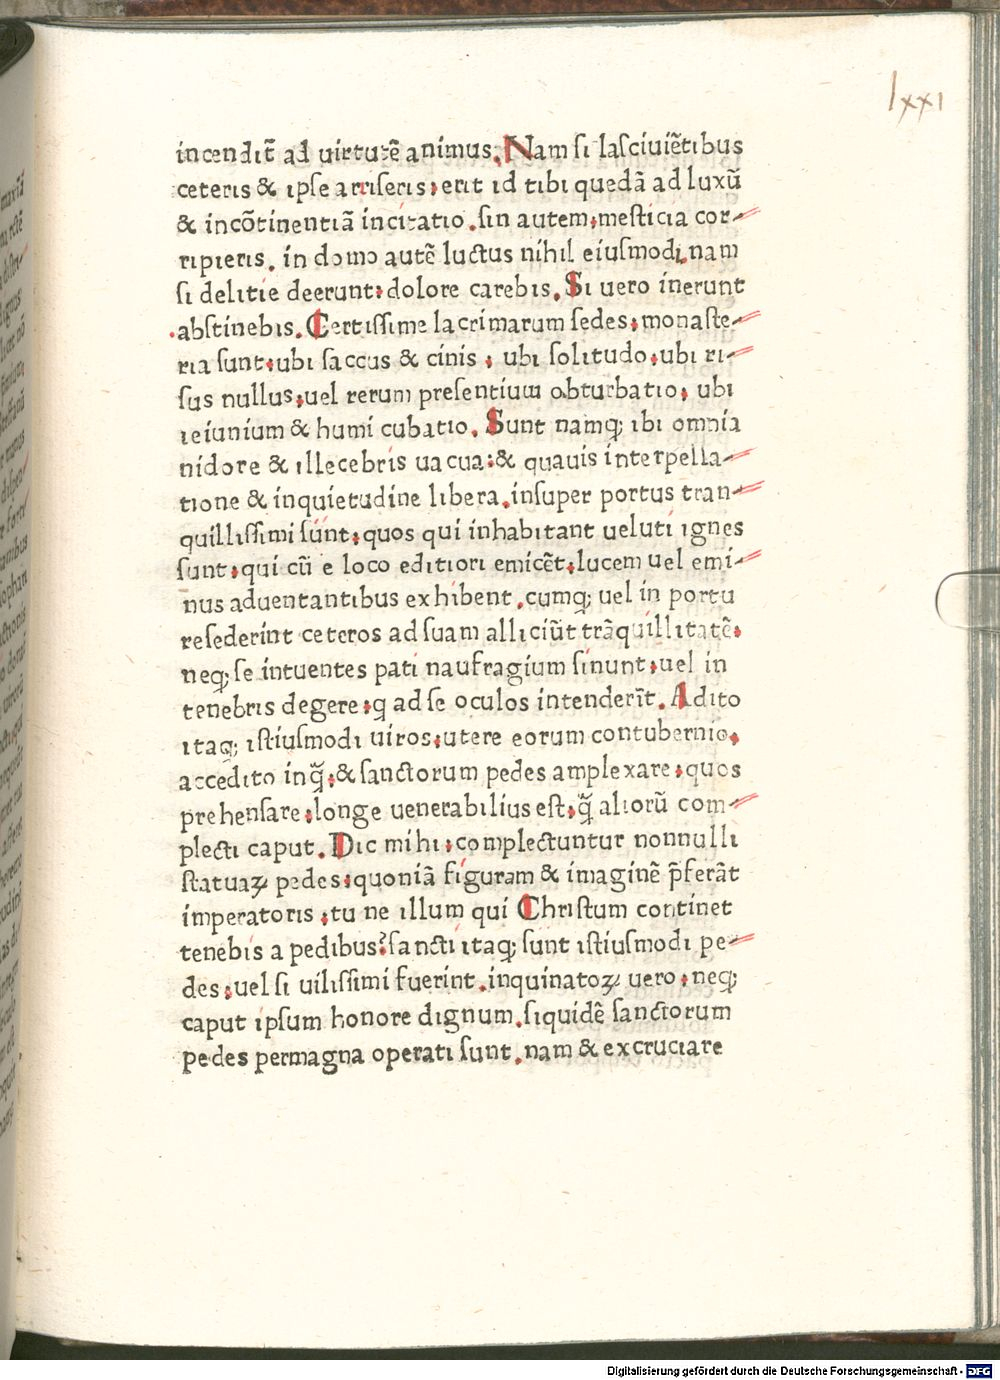 lxxi
incendit̄ ad uirtutē animus. Nam si lasciuiētibus
ceteris & ipse arriseris: erit id tibi quedā ad luxū
& incōtinentiā incitatio. sin autem: mesticia cor-
ripieris. in domo autē luctus nihil eiusmodi. nam
si delitie deerunt: dolore carebis. Si uero inerunt
abstinebis. Certissime lacrimarum sedes: monaste-
ria sunt: ubi saccus & cinis: ubi solitudo: ubi ri-
sus nullus: uel rerum presentium obturbatio: ubi
ieiunium & humi cubatio. Sunt namq; ibi omnia
nidore & illecebris uacua: & quauis interpella-
tione & inquietudine libera. insuper portus tran-
quillissimi sunt: quos qui inhabitant ueluti ignes
sunt: qui cū e loco editiori emicēt: lucem uel emi-
nus aduentantibus exhibent. cumq; uel in portu
resederint ceteros ad suam alliciūt trāquillitatē:
neq; se intuentes pati naufragium sinunt: uel in
tenebris degere: q ad se oculos intenderīt. Adito
itaq; istiusmodi uiros: utere eorum contubernio.
accedito inq̄: & sanctorum pedes amplexare: quos
prehensare: longe uenerabilius est: q̄ aliorū com-
plecti caput. Dic mihi: complectuntur nonnulli
statuaꝝ pedes: quoniā figuram & imaginē p̄ferāt
imperatoris: tu ne illum qui Christum continet
tenebis a pedibus? sancti itaq; sunt istiusmodi pe-
des: uel si uilissimi fuerint. inquinatoꝝ uero: neq;
caput ipsum honore dignum. siquidē sanctorum
pedes permagna operati sunt. nam & excruciare
Digitalisierung gefördert durch die Deutsche Forschungsgemeinschaft - DFG